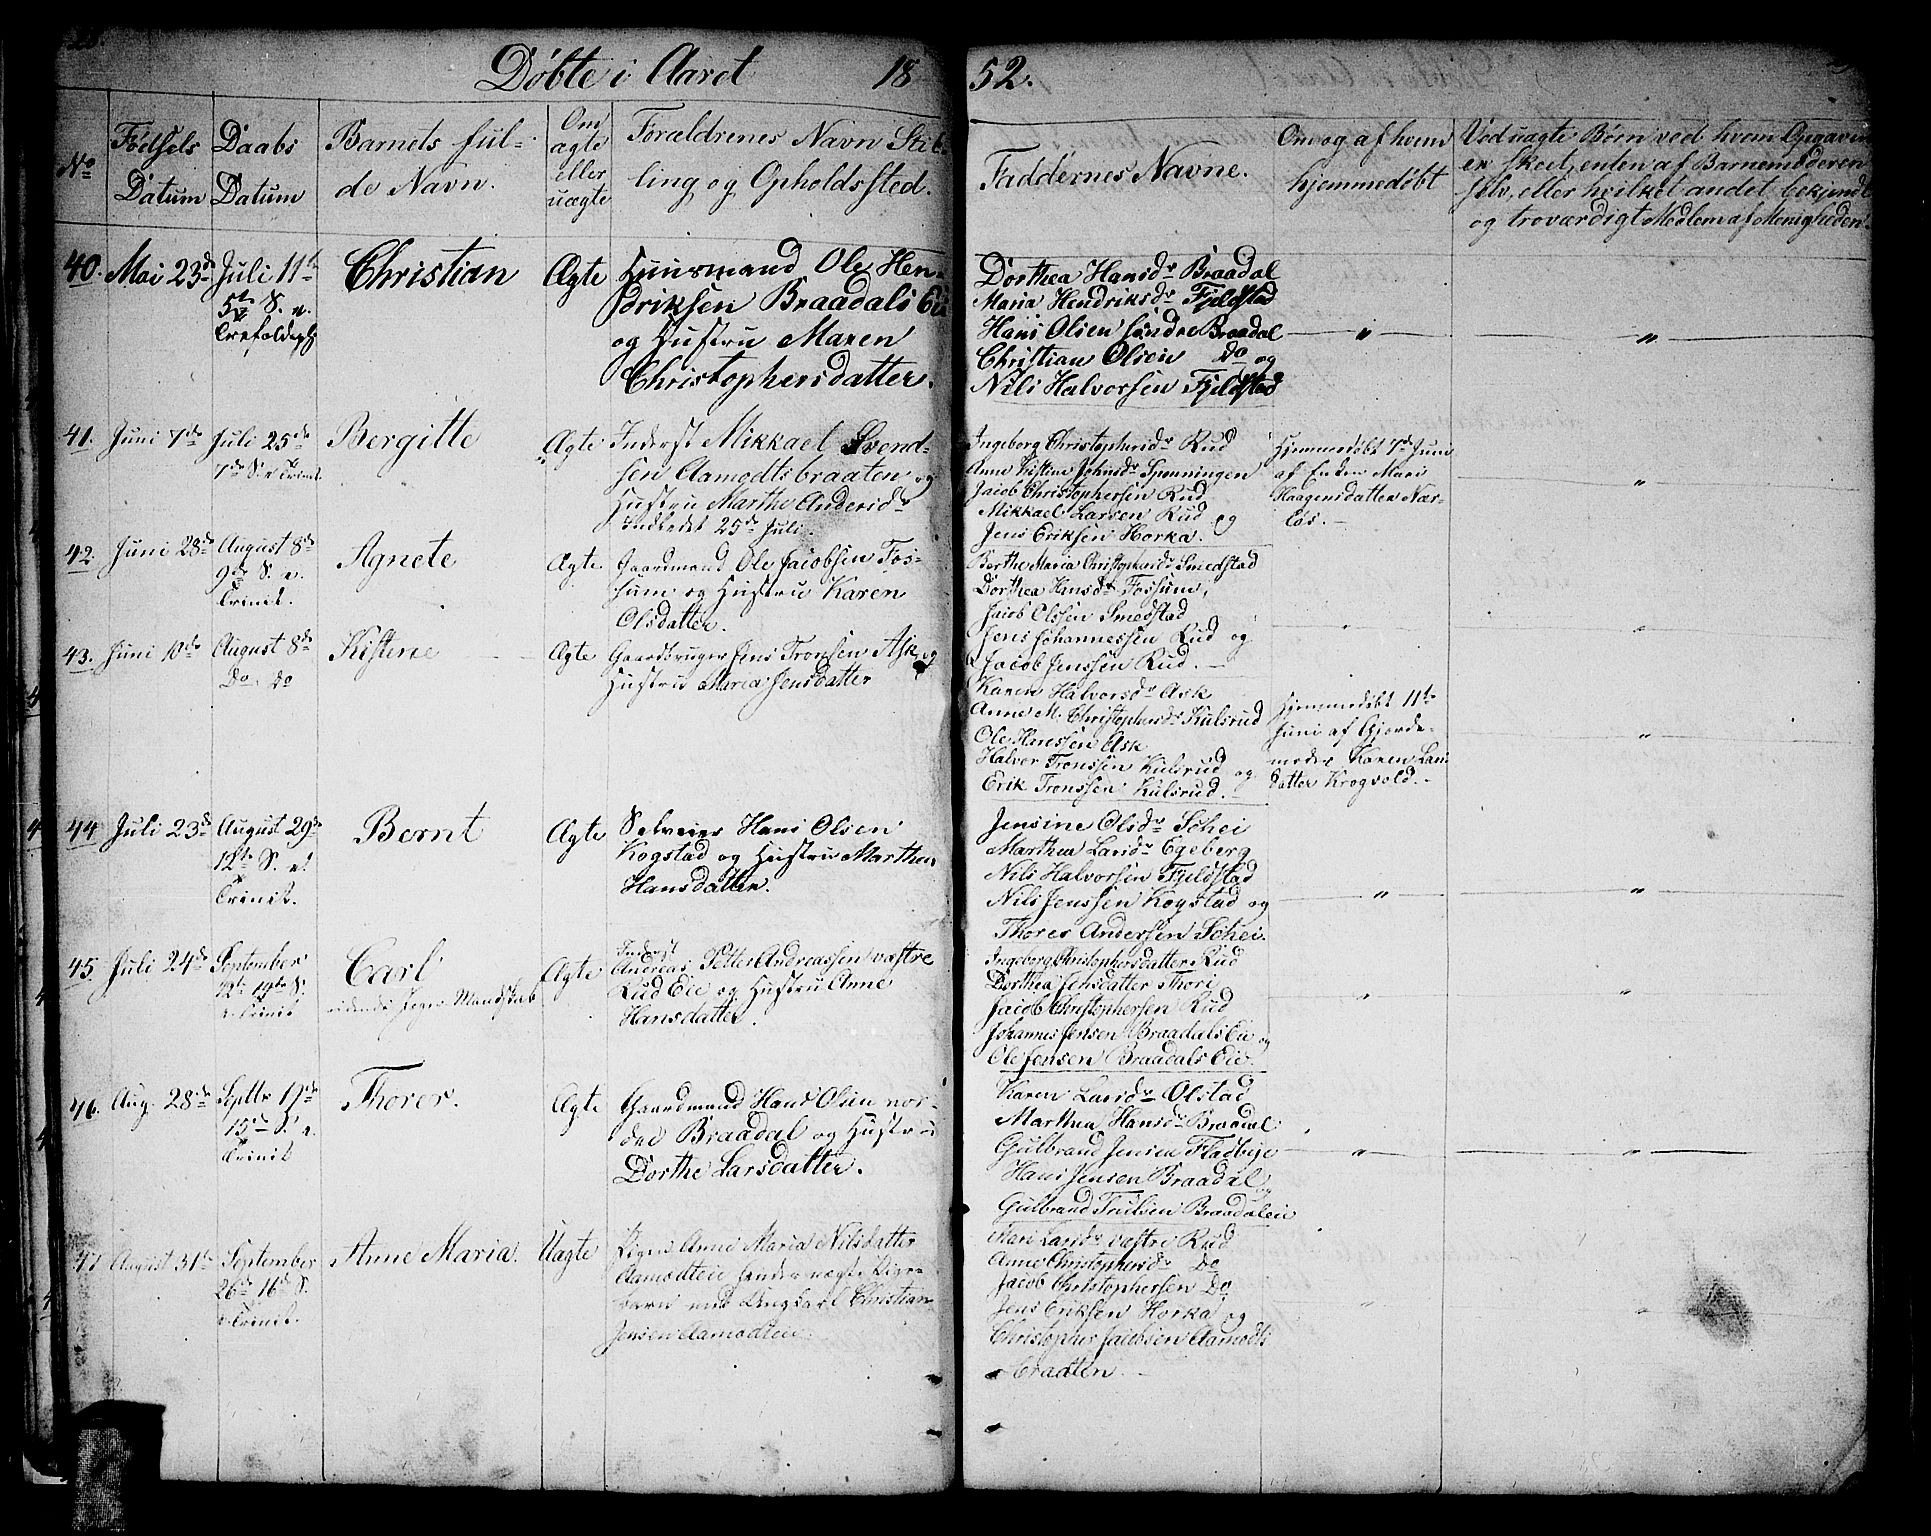 Døbte i Aaret 1852.
No
Fødsels Datum
Daabs Datum
Barnets ful-
de Navn.
Om
ægte
eller
uægte
Forældrenes Navn Stil-
ling og Opholdssted.
Faddernes Navne.
Om og af hvem
hjemmedøbt
Ved uægte Børn ved hvem Opgaven
er skeet, enten af Barnemoderen
selv, eller hvilket andet bekjendt
og troværdigt Medlem af Menigheden.
40. Mai 23de
Juli 11te
5te S. e.
Trefoldigh.
Christian
Ægte
Huusmand Ole Hen-
driksen Braadals Eie
og Hustru Maren
Christophersdatter.
Dorthea Hansdr Braadal
Maria Hendriksdr Fjeldstad
Hans Olsen søndre Braadal
Christian Olsen Do og
Nils Halvorsen Fjeldstad
— " —
— " —
41. Juni 7de
Juli 25de
7de S. e. Trinit.
Bergitte
Ægte
Inderst Mikkael Svend-
sen Aamodtsbraaten og
Hustru Marthe Andersdr
Indledet 25de Juli.
Ingeborg Christophersdr Rud
Anne Kistene Johnsdr Spønningen
Jacob Christophersen Rud
Mikkael Larsen Rud og
Jens Eriksen Horka.
Hjemmedøbt 7de Juni
af Enken Mari
Haagensdatter Nær-
løs. —
— " —
42. Juni 28de
August 8de
9de S. e.
Trinit.
Agnete
Ægte
Gaardmand Ole Jacobsen Fos-
sum og Hustru Karen
Olsdatter.
Berthe Maria Christophersdr Smedstad
Dorthea Hansdr Fossum,
Jacob Olssen Smedstad
Jens Johannessen Rud og
Jacob Jenssen Rud. —
— " —
— " —
43. Juni 10de
August 8de
Do. Do
Kistene
Ægte
Gaardbruger Jens Tronsen Ask og
Hustru Maria Jensdatter
Karen Halvorsdr Ask
Anne M. Christophersdr Kulsrud
Ole Hanssen Ask
Halvor Tronssen Kulsrud og
Erik Tronssen Kulsrud. —
Hjemmedøbt 11te
Juni af Gjorde-
moder Karen Lars
datter Krogvold. —
— " —
44 Juli 23de
August 29de
12te S. e.
Trinit.
Bernt
Ægte
Selveier Hans Olsen
Kogstad og Hustru Marthea
Hansdatter.
Jensine Olsdr Schei
Marthea Larsdr Egeberg
Nils Halvorsen Fjeldstad
Nils Jenssen Kogstad og
Thorer Andersen Schei.
— " —
— " —
45 Juli 24de
September
12te 14de S.
e. Trinit
Carl
ridende Jæger Mandskab
Ægte
Inderst
Andreas Petter Andreassen vestre
Rud Eie og Hustru Anne
Hansdatter.
Ingeborg Christophersdatter Rud
Dorthea Jensdatter Thori
Jacob Christophersen Rud
Johannes Jensen Braadals Eie og
Ole Jensen Braadals Eie.
— " —
— " —
46. Aug. 28de
Septbr 19de
15de S. e.
Trinit
Thorer.
Ægte
Gaardmand Hans Olsen nor-
dre Braadal og Hustru
Dorthe Larsdatter.
Karen Larsdr Olstad
Marthea Hansdr Braadal
Gulbrand Jensen Fladbye
Hans Jensen Braadal
og
Gulbrand Trulsen Braadaleie
— " —
— " —
47 August 31te
September
26de 16de S.
e. Trinit.
Anne Maria.
Uægte
Pigen Anne Maria Nilsdatter
Aamodteie hendes uægte Pige-
barn med Ungkarl Christian
Jensen Aamodteie.
Mari Larsdr vestre Rud
Anne Christophersdr Do
Jacob Christophersen Do
Jens Eriksen Horka og
Christopher Jacobsen Aamodts
braaten. —
"
"